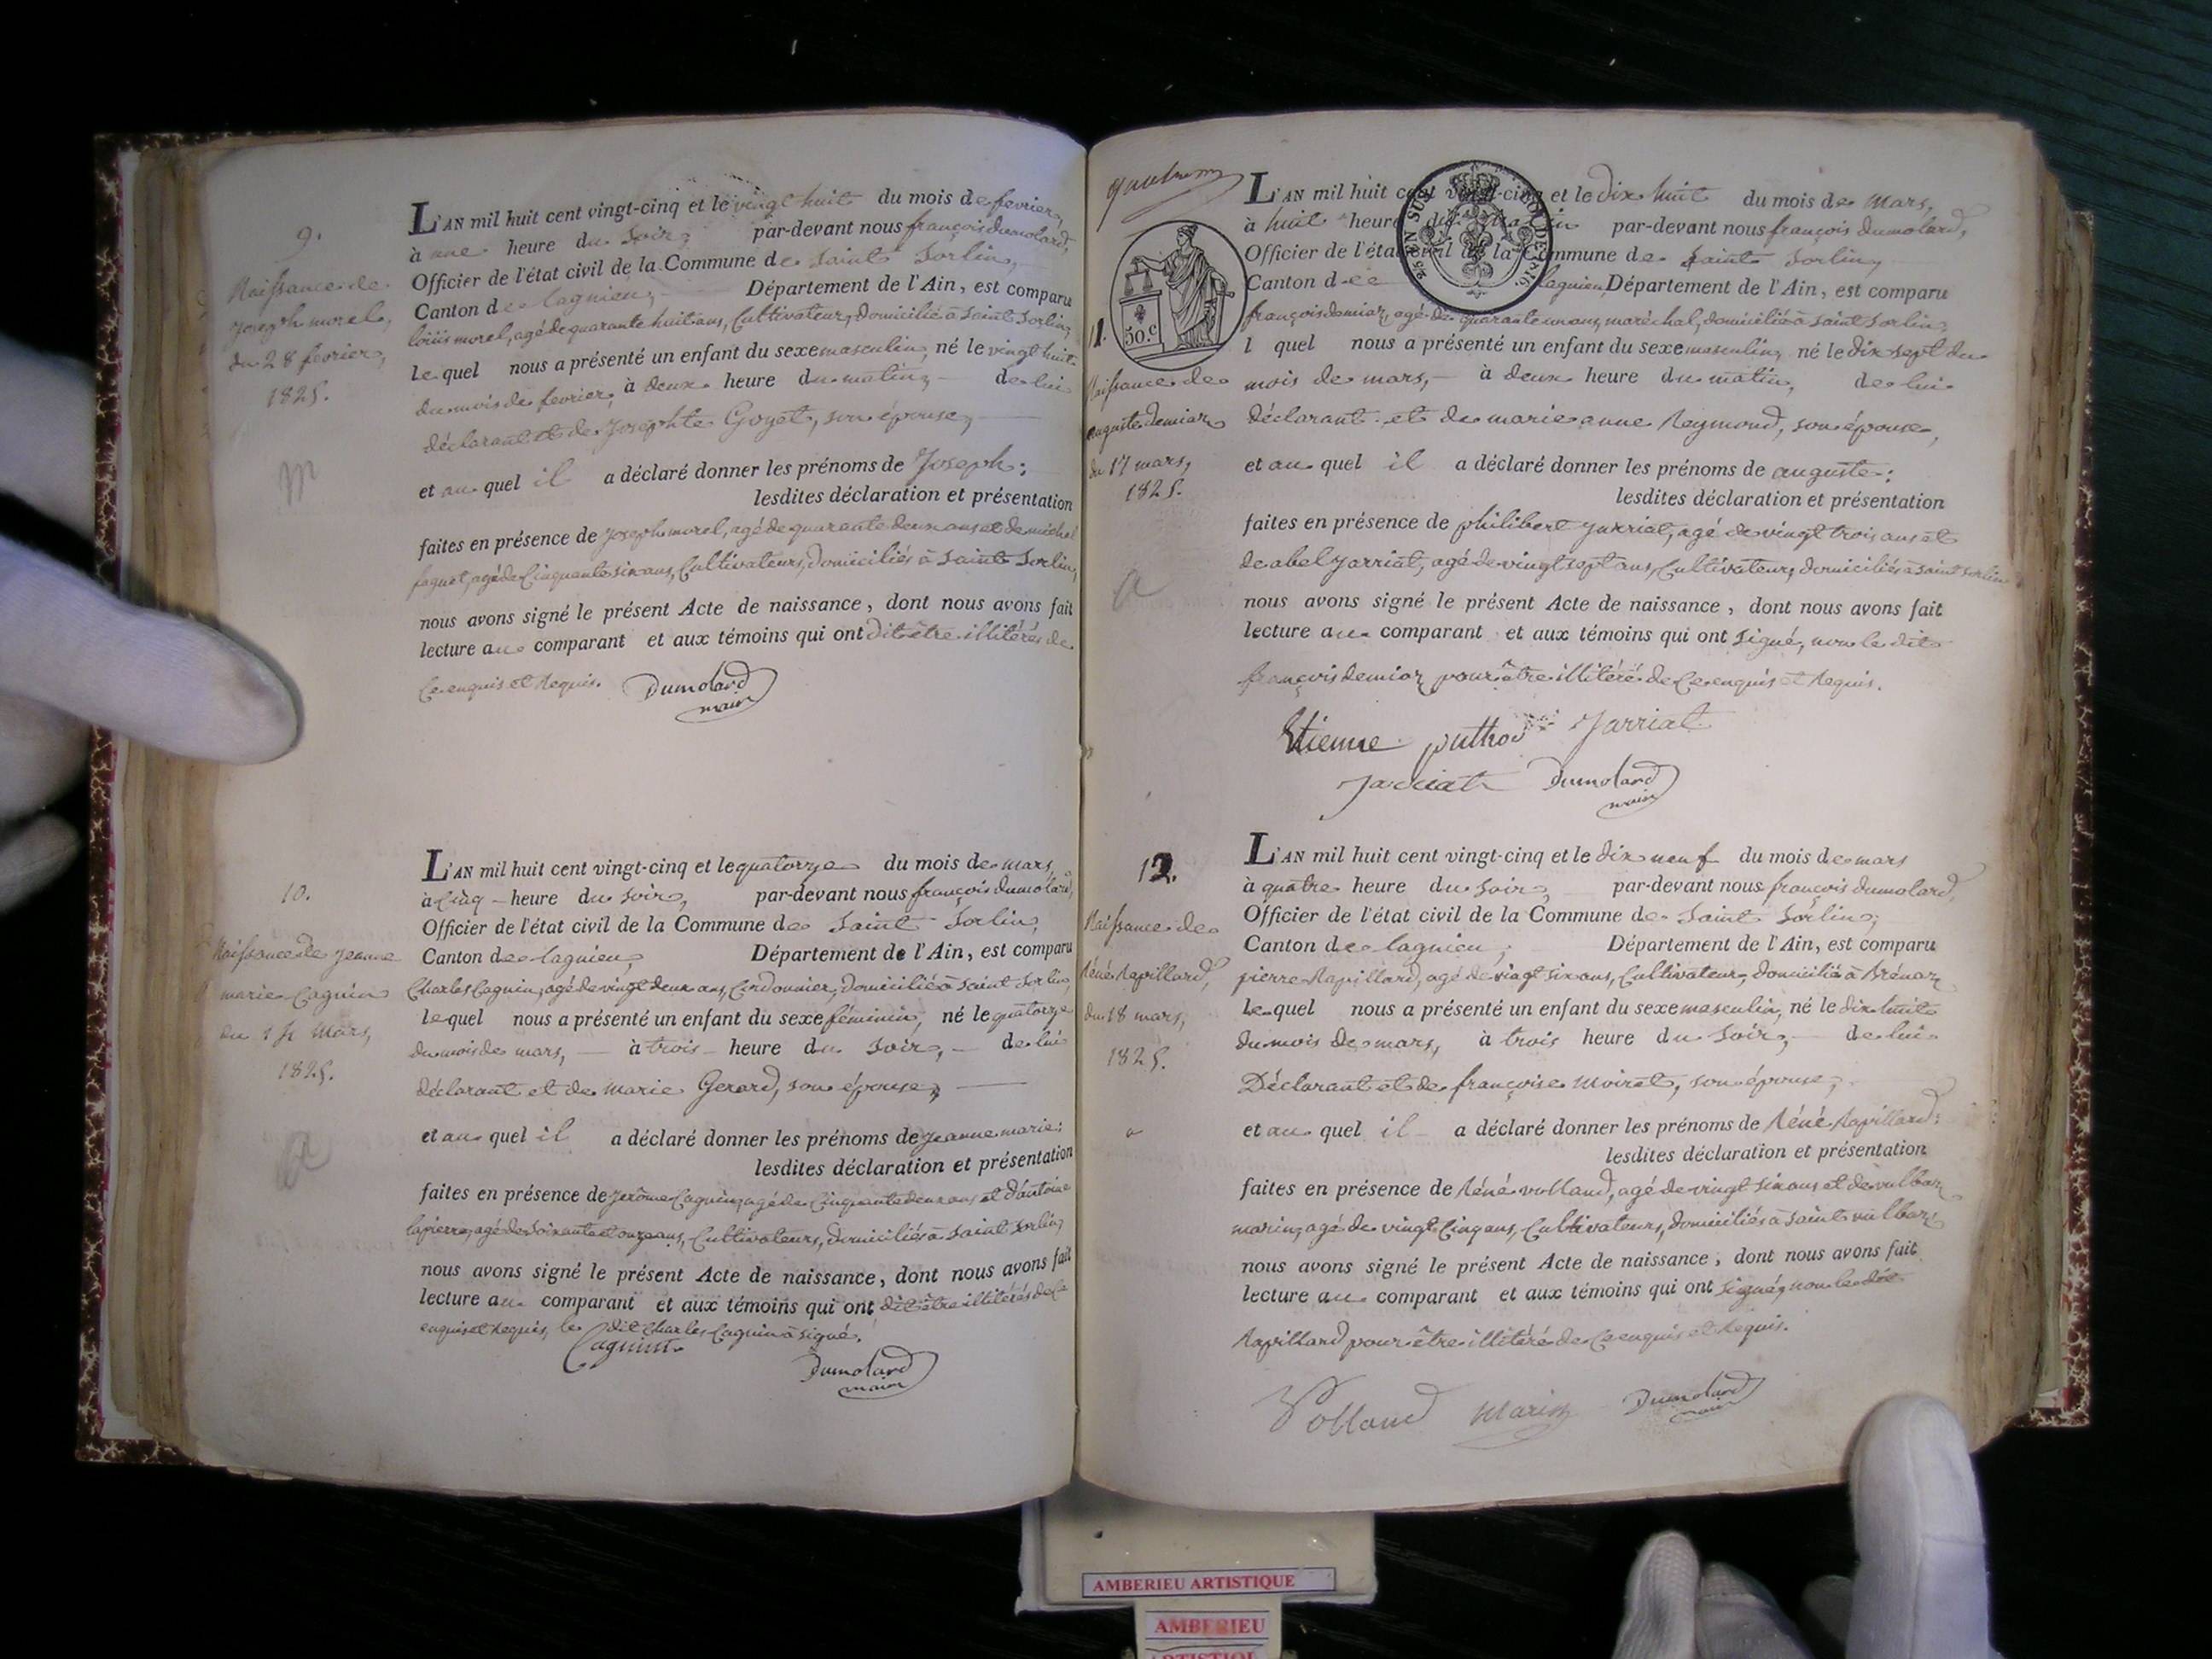 9.
Naissance de
Joseph morel,
du 28 fevrier,
1825.
M
L'AN mil huit cent vingt-cinq et le vingt huit du mois de fevrier,
à une heure du soir, par-devant nous françois dumolard,
Officier de l'état civil de la Commune de Saint Sorlin,
Canton de lagnieu, Département de l'Ain, est comparu
loüis morel, agé de quarante huit ans, Cultivateur, domicilié à Saint Sorlin,
le quel nous a présenté un enfant du sexe masculin, né le vingt huit
du mois de fevrier, à deux heure du matin, de lui
déclarant et de Josephte Goyet, son épouse,
et au quel il a déclaré donner les prénoms de Joseph;
lesdites déclaration et présentation
faites en présence de Joseph morel, agé de quarante deux ans et de michel
faquet, agé de Cinquante six ans, Cultivateurs, domiciliés à Saint Sorlin,
nous avons signé le présent Acte de naissance, dont nous avons fait
lecture au comparant et aux témoins qui ont dit être illitérés de
Ce enquis et Requis. Dumolard
maire
10.
Naissance de Jeanne
marie Cagnin
du 14 Mars,
1825.
a
L'AN mil huit cent vingt-cinq et le quatorze du mois de mars,
à Cinq heure du soir, par-devant nous françois dumolard,
Officier de l'état civil de la Commune de Saint Sorlin,
Canton de lagnieu, Département de l'Ain, est comparu
Charles Cagnin, agé de vingt deux ans, Cordonnier, domicilié à Saint Sorlin,
le quel nous a présenté un enfant du sexe féminin, né le quatorze
du mois de mars, à trois heure du soir, de lui
déclarant et de marie Gerard, son épouse,
et au quel il a déclaré donner les prénoms de Jeanne marie;
lesdites déclaration et présentation
faites en présence de Jerôme Cagnin, agé de Cinquante deux ans et d'antoine
lapierre, agé de Soixante et onze ans, Cultivateurs, domiciliés à Saint Sorlin,
nous avons signé le présent Acte de naissance, dont nous avons fait
lecture au comparant et aux témoins qui ont dit être illitérés de Ce
enquis et Requis, le dit Charles Cagnin à signé.
Cagnin
Dumolard
maire
50.c
11.
Naissance de
auguste demiaz
du 17 mars,
1825.
a
L'AN mil huit cent vingt-cinq et le Dix huit du mois de Mars,
à huit heure du matin par-devant nous françois dumolard,
Officier de l'état civil de la Commune de Saint Sorlin,
Canton de lagnieu, Département de l'Ain, est comparu
françois demiaz, agé de quarante un ans, maréchal, domicilié à Saint Sorlin,
l quel nous a présenté un enfant du sexe masculin, né le dix sept du
mois de mars, à deux heure du matin, de lui
déclarant et de marie anne Reymond, son épouse,
et au quel il a déclaré donner les prénoms de auguste;
lesdites déclaration et présentation
faites en présence de philibert Jarriat, agé de vingt trois ans et
de abel Jarriat, agé de vingt sept ans, Cultivateurs, domiciliés à Saint Sorlin
nous avons signé le présent Acte de naissance, dont nous avons fait
lecture au comparant et aux témoins qui ont signé, non le dit
françois demiaz pour être illitéré de Ce enquis et Requis.
Etienne puthod Jarriat
Jarriat Dumolard
maire
12.
Naissance de
Réné Rapillard,
du 18 mars,
1825.
a
L'AN mil huit cent vingt-cinq et le dix neuf du mois de mars
à quatre heure du soir, par-devant nous françois dumolard,
Officier de l'état civil de la Commune de Saint Sorlin,
Canton de lagnieu, Département de l'Ain, est comparu
pierre Rapillard, agé de vingt six ans, Cultivateur, domicilié à Brénaz
le quel nous a présenté un enfant du sexe masculin, né le dix huit
du mois de mars, à trois heure du soir, de lui
Déclarant et de françoise moiret, son épouse,
et au quel il a déclaré donner les prénoms de Réné Rapillard;
lesdites déclaration et présentation
faites en présence de Réné volland, agé de vingt six ans et de vulbaz
marin, agé de vingt Cinq ans, Cultivateurs, domiciliés à Saint vulbaz
nous avons signé le présent Acte de naissance, dont nous avons fait
lecture au comparant et aux témoins qui ont signé, non le dit
Rapillard pour être illitéré de Ce enquis et Requis.
Volland marin Dumolard
maire
AMBERIEU ARTISTIQUE
AMBERIEU
ARTISTIQUE